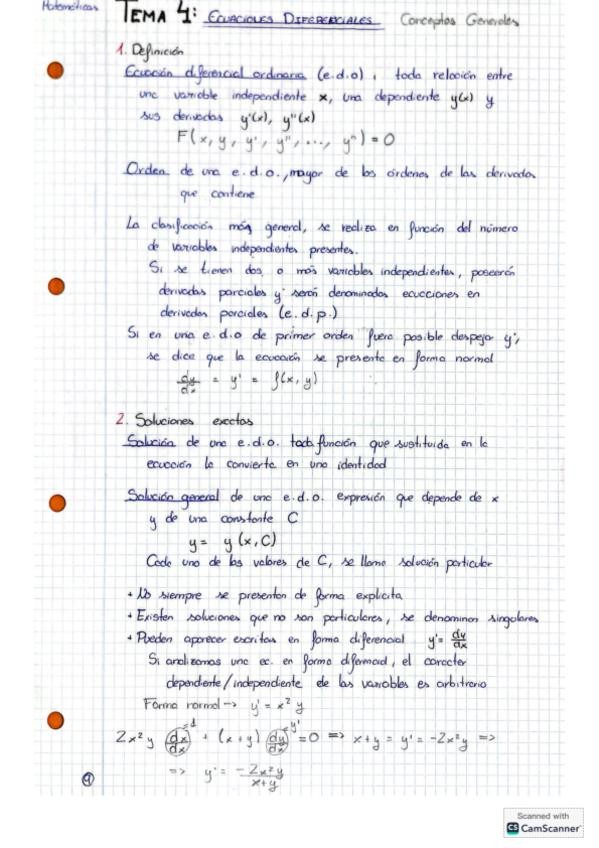 Matemáticas
TEMA 4: ECUACIONES DIFERENCIALES Conceptos Generales
1. Definición
Ecuación diferencial ordinaria (e.d.o), toda relación entre
una variable independiente x, una dependiente y(x) y
sus derivadas y'(x), y''(x)
F(x, y, y', y'', ..., yⁿ) = 0
Orden de una e.d.o., mayor de los órdenes de las derivadas
que contiene
La clasificación más general, se realiza en función del número
de variables independientes presentes.
Si se tienen dos o más variables independientes, poseerán
derivadas parciales y serán denominadas ecuaciones en
derivadas parciales (e.d.p.)
Si en una e.d.o de primer orden fuera posible despejar y',
se dice que la ecuación se presenta en forma normal
dy/dx = y' = f(x, y)
2. Soluciones exactas
Solución de una e.d.o. toda función que sustituida en la
ecuación la convierta en una identidad
Solución general de una e.d.o. expresión que depende de x
y de una constante C
y = y(x, C)
Cada uno de los valores de C, se llama solución particular
+ No siempre se presentan de forma explícita
+ Existen soluciones que no son particulares, se denominan singulares
+ Pueden aparecer escritas en forma diferencial y' = dy/dx
Si analizamos una ec. en forma diferencial, el carácter
dependiente/independiente de las variables es arbitrario
Forma normal -> y' = x² y
2x²y (dx/dx) =1 + (x+y) (dy/dx) =y' =0 => x+y = y' = -2x²y =>
=> y' = -2x²y/x+y
①
Scanned with
CS CamScanner